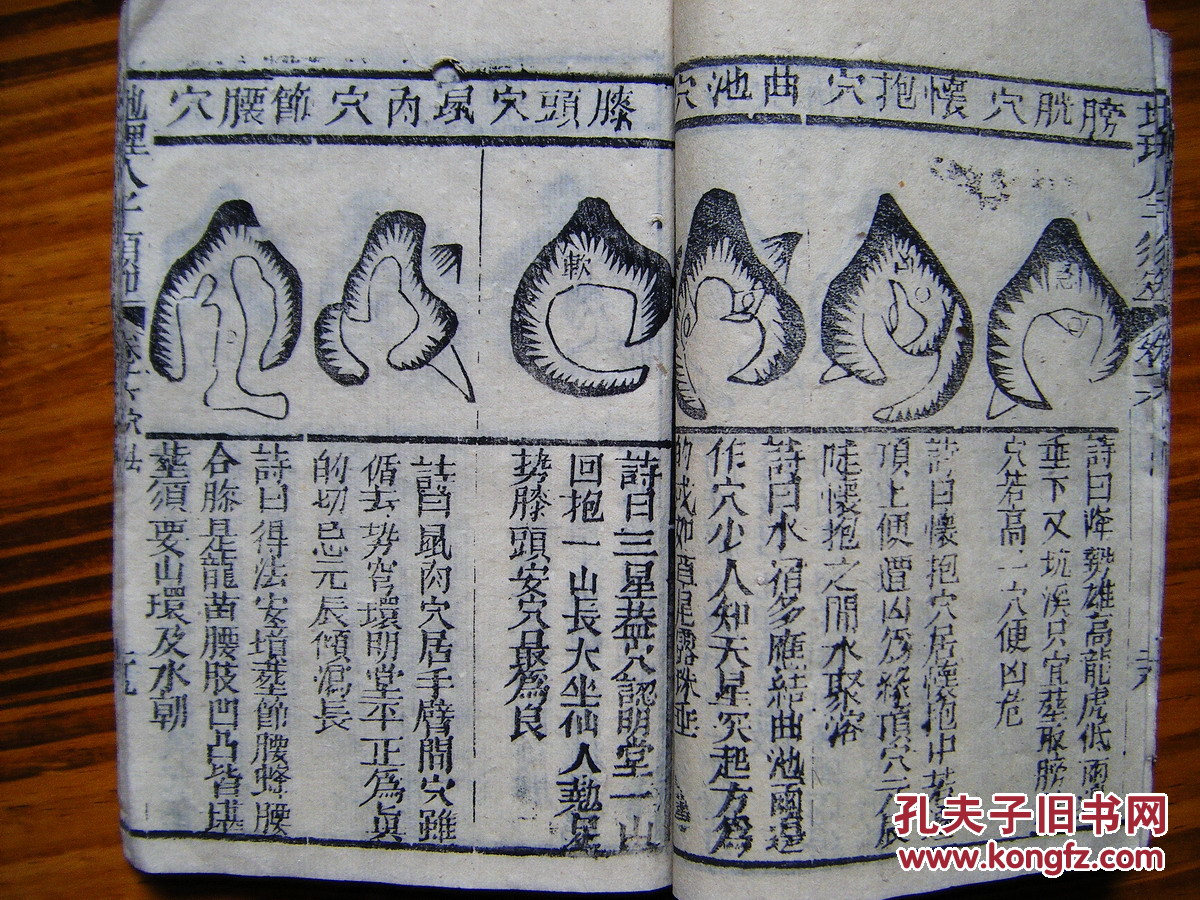 膀胱穴 懷抱穴 曲池穴
急
詩曰降勢雄高龍虎低兩
垂下又坑溪只宜塟取膀
穴若高一穴便凶危
詩曰懷抱穴居懷抱中若
頂上便遭凶
陡懷抱之間水聚溶
詩曰水宿多應結曲池兩邉
作穴少人知天星突起方爲
膝頭穴 鼠肉穴 節腰穴
軟
詩曰三星葢穴認明堂一山
回抱一山長大坐仙人勢星
势膝頭安穴最為良
詩曰鼠肉穴居手臂間穴雖
循去势穹環明堂平正為眞
的切忌元辰傾瀉長
詩曰得法安墳塟節腰蜂腰
合膝是龍凿腰肢凹凸皆堪
塟須要山環及水朝
地理人子須知
孔夫子旧书网
www.kongfz.com